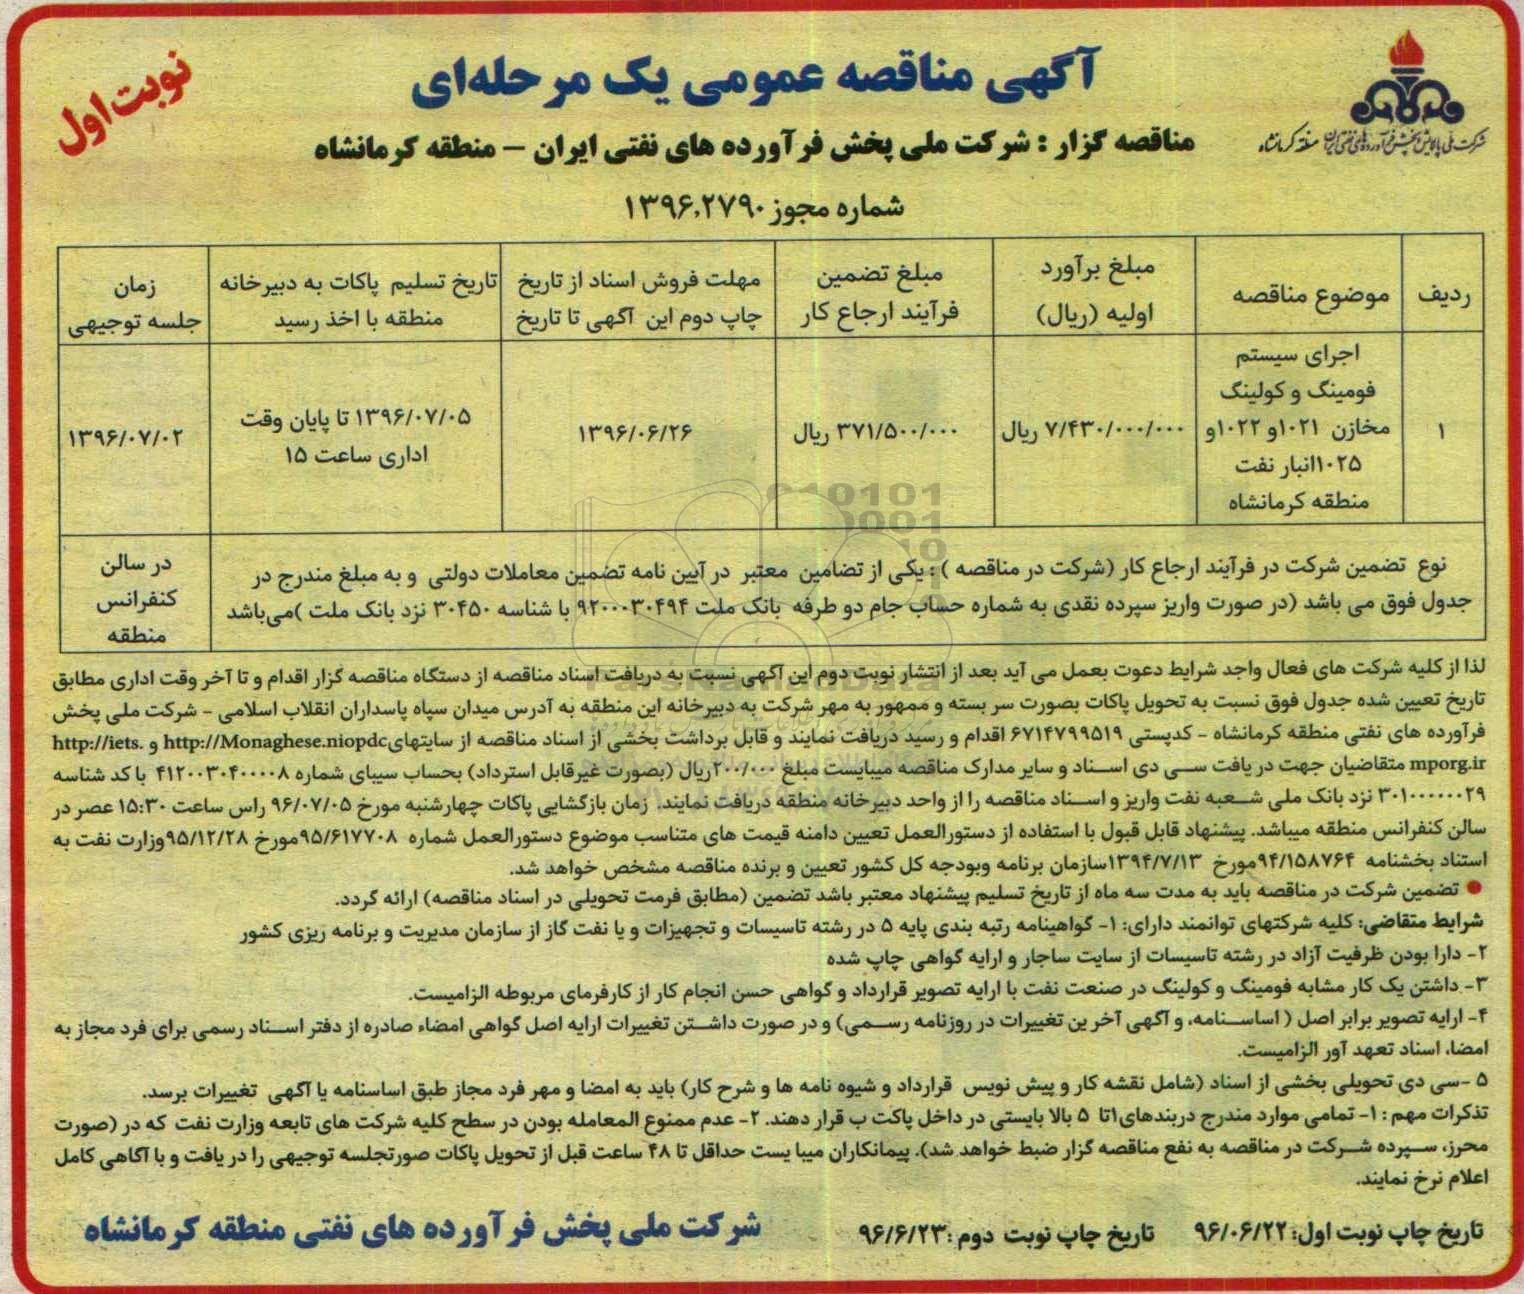 نوبت اول
آگهی مناقصه عمومی یک مرحله‌ای
شرکت ملی پالایش و پخش فرآورده های نفتی ایران منطقه کرمانشاه
مناقصه گزار : شرکت ملی پخش فرآورده های نفتی ایران – منطقه کرمانشاه
شماره مجوز ۱۳۹۶.۲۷۹۰
ردیف
موضوع مناقصه
مبلغ برآورد
اولیه (ریال)
مبلغ تضمین
فرآیند ارجاع کار
مهلت فروش اسناد از تاریخ
چاپ دوم این آگهی تا تاریخ
تاریخ تسلیم پاکات به دبیرخانه
منطقه با اخذ رسید
زمان
جلسه توجیهی
۱
اجرای سیستم
فومینگ و کولینگ
مخازن ۱۰۲۱و ۱۰۲۲و
۱۰۲۵انبار نفت
منطقه کرمانشاه
۷/۴۳۰/۰۰۰/۰۰۰ ریال
۳۷۱/۵۰۰/۰۰۰ ریال
۱۳۹۶/۰۶/۲۶
۱۳۹۶/۰۷/۰۵ تا پایان وقت
اداری ساعت ۱۵
۱۳۹۶/۰۷/۰۲
نوع تضمین شرکت در فرآیند ارجاع کار (شرکت در مناقصه ) : یکی از تضامین معتبر در آیین نامه تضمین معاملات دولتی و به مبلغ مندرج در
جدول فوق می باشد (در صورت واریز سپرده نقدی به شماره حساب جام دو طرفه بانک ملت ۹۲۰۰۰۳۰۴۹۴ با شناسه ۳۰۴۵۰ نزد بانک ملت )می‌باشد
در سالن
کنفرانس
منطقه
لذا از کلیه شرکت های فعال واجد شرایط دعوت بعمل می آید بعد از انتشار نوبت دوم این آگهی نسبت به دریافت اسناد مناقصه از دستگاه مناقصه گزار اقدام و تا آخر وقت اداری مطابق
تاریخ تعیین شده جدول فوق نسبت به تحویل پاکات بصورت سر بسته و ممهور به مهر شرکت به دبیرخانه این منطقه به آدرس میدان سپاه پاسداران انقلاب اسلامی - شرکت ملی پخش
فرآورده های نفتی منطقه کرمانشاه - کدپستی ۶۷۱۴۷۹۹۵۱۹ اقدام و رسید دریافت نمایند و قابل برداشت بخشی از اسناد مناقصه از سایتهایhttp://Monaghese.niopdc و http://iets.
mporg.ir متقاضیان جهت دریافت سی دی اسناد و سایر مدارک مناقصه میبایست مبلغ ۲۰۰/۰۰۰ریال (بصورت غیرقابل استرداد) بحساب سیبای شماره ۴۱۲۰۰۳۰۴۰۰۰۰۸ با کد شناسه
۳۰۱۰۰۰۰۰۰۲۹ نزد بانک ملی شعبه نفت واریز و اسناد مناقصه را از واحد دبیرخانه منطقه دریافت نمایند. زمان بازگشایی پاکات چهارشنبه مورخ ۹۶/۰۷/۰۵ راس ساعت ۱۵:۳۰ عصر در
سالن کنفرانس منطقه میباشد. پیشنهاد قابل قبول با استفاده از دستورالعمل تعیین دامنه قیمت های متناسب موضوع دستورالعمل شماره ۹۵/۶۱۷۷۰۸مورخ ۹۵/۱۲/۲۸وزارت نفت به
استناد بخشنامه ۹۴/۱۵۸۷۶۴مورخ ۱۳۹۴/۷/۱۳سازمان برنامه وبودجه کل کشور تعیین و برنده مناقصه مشخص خواهد شد.
● تضمین شرکت در مناقصه باید به مدت سه ماه از تاریخ تسلیم پیشنهاد معتبر باشد تضمین (مطابق فرمت تحویلی در اسناد مناقصه) ارائه گردد.
شرایط متقاضی: کلیه شرکتهای توانمند دارای: ۱- گواهینامه رتبه بندی پایه ۵ در رشته تاسیسات و تجهیزات و یا نفت گاز از سازمان مدیریت و برنامه ریزی کشور
۲- دارا بودن ظرفیت آزاد در رشته تاسیسات از سایت ساجار و ارایه گواهی چاپ شده
۳- داشتن یک کار مشابه فومینگ و کولینگ در صنعت نفت با ارایه تصویر قرارداد و گواهی حسن انجام کار از کارفرمای مربوطه الزامیست.
۴- ارایه تصویر برابر اصل ( اساسنامه، و آگهی آخرین تغییرات در روزنامه رسمی) و در صورت داشتن تغییرات ارایه اصل گواهی امضاء صادره از دفتر اسناد رسمی برای فرد مجاز به
امضا، اسناد تعهد آور الزامیست.
۵ -سی دی تحویلی بخشی از اسناد (شامل نقشه کار و پیش نویس قرارداد و شیوه نامه ها و شرح کار) باید به امضا و مهر فرد مجاز طبق اساسنامه یا آگهی تغییرات برسد.
تذکرات مهم : ۱- تمامی موارد مندرج دربندهای۱تا ۵ بالا بایستی در داخل پاکت ب قرار دهند. ۲- عدم ممنوع المعامله بودن در سطح کلیه شرکت های تابعه وزارت نفت که در (صورت
محرز، سپرده شرکت در مناقصه به نفع مناقصه گزار ضبط خواهد شد). پیمانکاران میبایست حداقل تا ۴۸ ساعت قبل از تحویل پاکات صورتجلسه توجیهی را دریافت و با آگاهی کامل
اعلام نرخ نمایند.
تاریخ چاپ نوبت اول: ۹۶/۰۶/۲۲ تاریخ چاپ نوبت دوم :۹۶/۶/۲۳
شرکت ملی پخش فرآورده های نفتی منطقه کرمانشاه